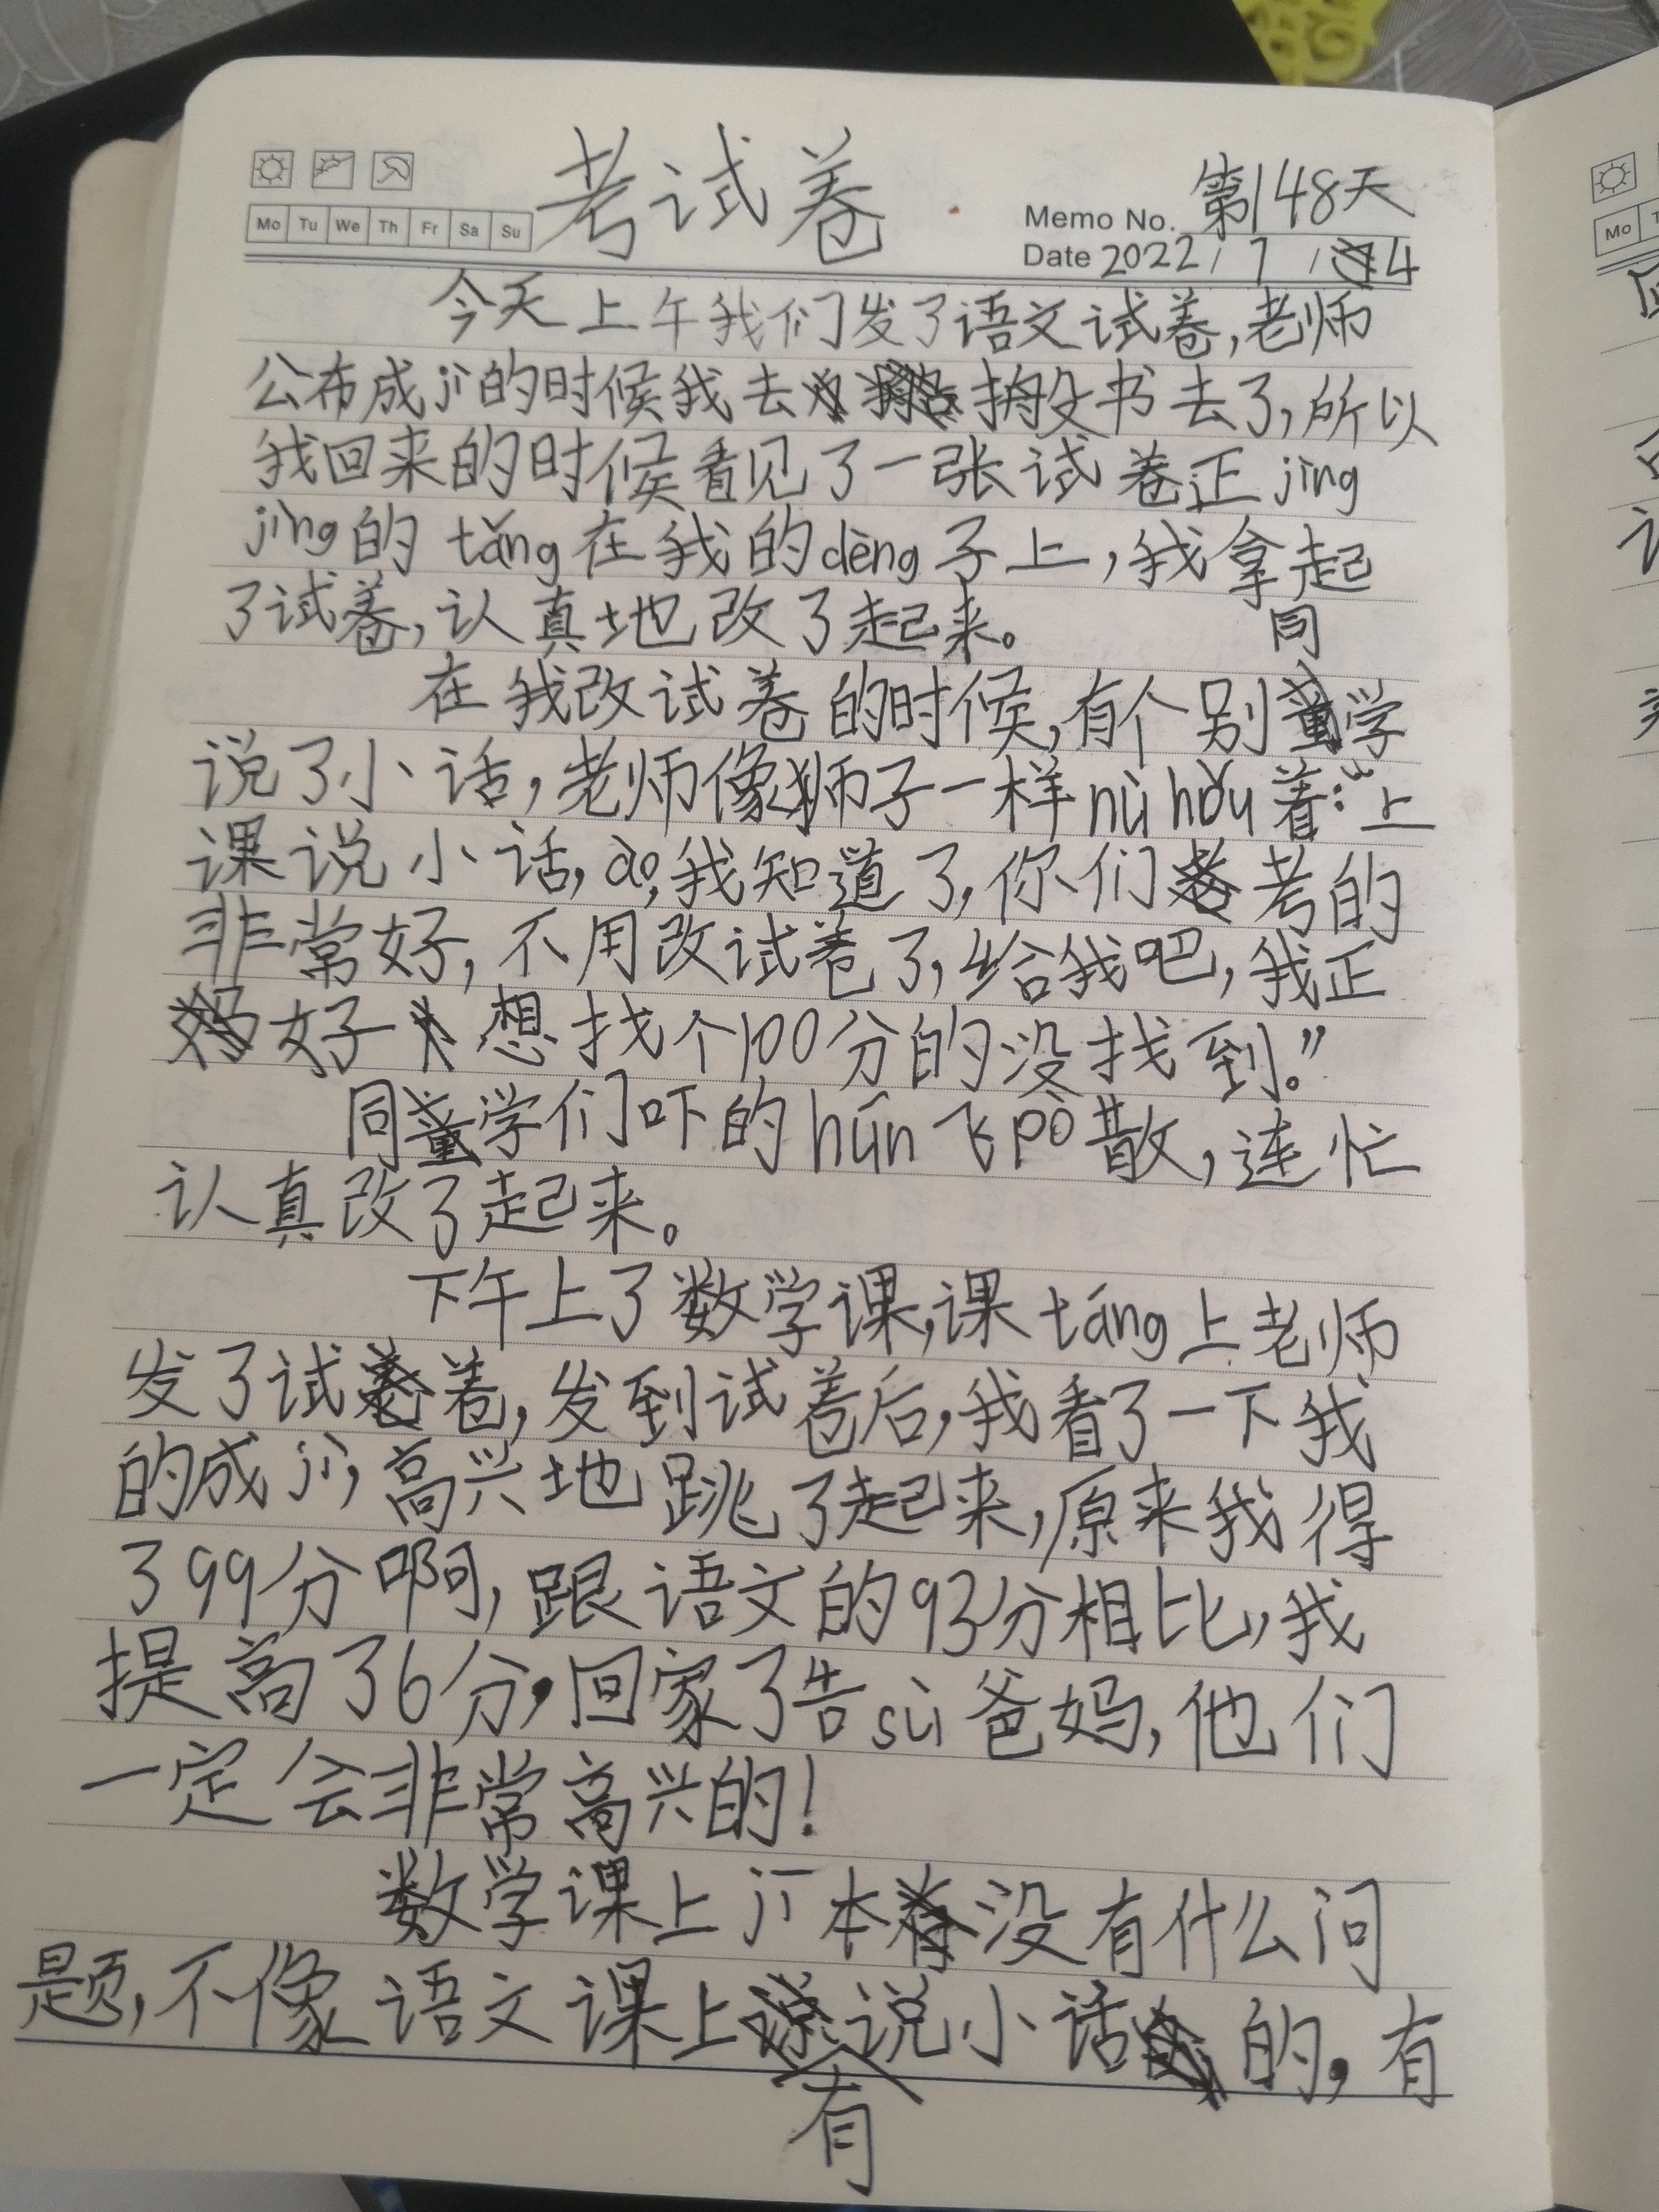 考试卷
Memo No. 第148天
Mo Tu We Th Fr Sa Su
Date 2022/7/4
今天上午我们发了语文试卷,老师
公布成jì的时候我去搬书去了,所以
我回来的时候看见了一张试卷正jìng
jìng的tǎng在我的dèng子上,我拿起
了试卷,认真地改了起来。
在我改试卷的时候,有个别同学
说了小话,老师像狮子一样nù hǒu着:“上
课说小话,ò,我知道了,你们考的
非常好,不用改试卷了,给我吧,我正
好想找个100分的没找到。”
同学们吓的hún飞pò散,连忙
认真改了起来。
下午上了数学课,课táng上老师
发了试卷,发到试卷后,我看了一下我
的成jì,高兴地跳了起来,原来我得
了99分啊,跟语文的93分相比,我
提高了6分,回家了告sù爸妈,他们
一定会非常高兴的!
数学课上jī本没有什么问
题,不像语文课上有说小话的,有
Mo